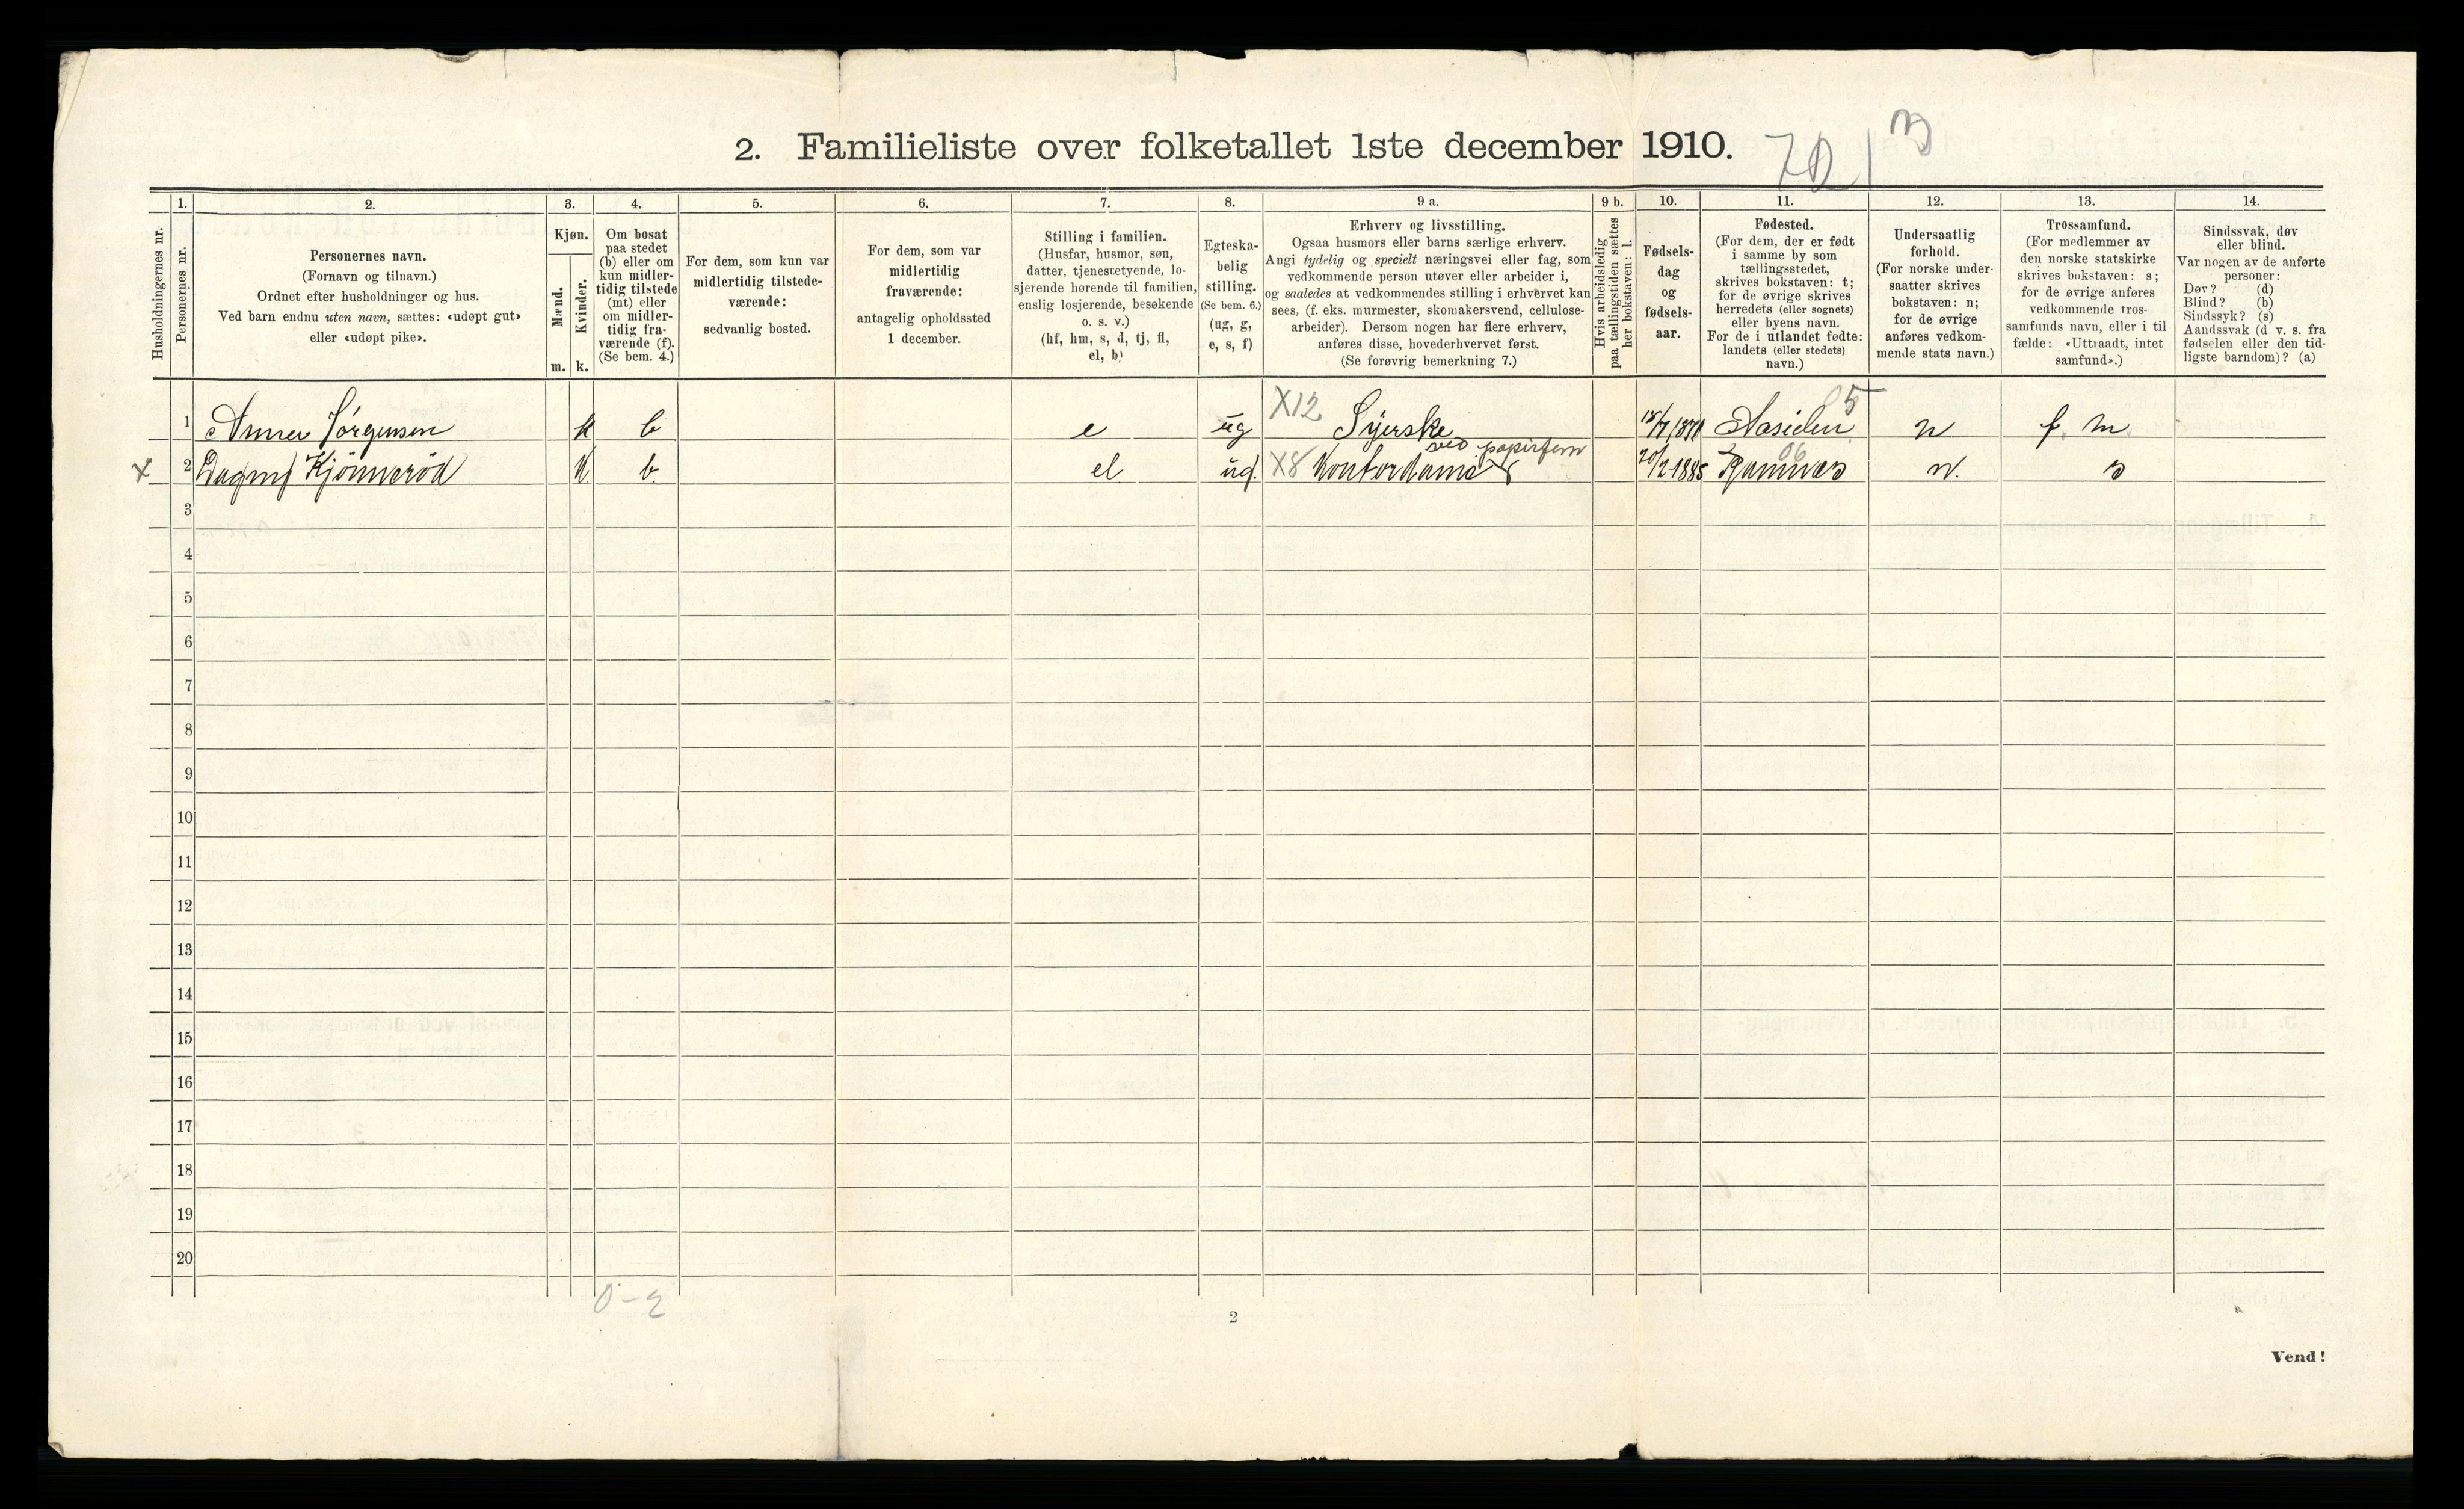 2. Familieliste over folketallet 1ste december 1910.
Husholdningernes nr.
1.
Personernes nr.
2.
Personernes navn.
(Fornavn og tilnavn.)
Ordnet efter husholdninger og hus.
Ved barn endnu uten navn, sættes: «udøpt gut»
eller «udøpt pike».
3.
Kjøn.
Mænd.
Kvinder.
m. k.
4.
Om bosat
paa stedet
(b) eller om
kun midler-
tidig tilstede
(mt) eller
om midler-
tidig fra-
værende (f).
(Se bem. 4.)
5.
For dem, som kun var
midlertidig tilstede-
værende:
sedvanlig bosted.
6.
For dem, som var
midlertidig
fraværende:
antagelig opholdssted
1 december.
7.
Stilling i familien.
(Husfar, husmor, søn,
datter, tjenestetyende, lo-
sjerende hørende til familien,
enslig losjerende, besøkende
o. s. v.)
(hf, hm, s, d, tj, fl,
el, b)
8.
Egteska-
belig
stilling.
(Se bem. 6.)
(ug, g,
e, s, f)
9 a.
Erhverv og livsstilling.
Ogsaa husmors eller barns særlige erhverv.
Angi tydelig og specielt næringsvei eller fag, som
vedkommende person utøver eller arbeider i,
og saaledes at vedkommendes stilling i erhvervet kan
sees, (f. eks. murmester, skomakersvend, cellulose-
arbeider). Dersom nogen har flere erhverv,
anføres disse, hovederhvervet først.
(Se forøvrig bemerkning 7.)
9 b.
Hvis arbeidsledig
paa tællingstiden sættes
her bokstaven: l.
10.
Fødsels-
dag
og
fødsels-
aar.
11.
Fødested.
(For dem, der er født
i samme by som
tællingsstedet,
skrives bokstaven: t;
for de øvrige skrives
herredets (eller sognets)
eller byens navn.
For de i utlandet fødte:
landets (eller stedets)
navn.)
12.
Undersaatlig
forhold.
(For norske under-
saatter skrives
bokstaven: n;
for de øvrige
anføres vedkom-
mende stats navn.)
13.
Trossamfund.
(For medlemmer av
den norske statskirke
skrives bokstaven: s;
for de øvrige anføres
vedkommende tros-
samfunds navn, eller i til
fælde: «Uttraadt, intet
samfund».)
14.
Sindssvak, døv
eller blind.
Var nogen av de anførte
personer:
Døv? (d)
Blind? (b)
Sindssyk? (s)
Aandssvak (d v. s. fra
fødselen eller den tid-
ligste barndom)? (a)
1 Anna Jörgensen k b e ug X12 Syerske 05 n f. m
x 2 Dagny Kjönnerød k b el ug. X8 Kontordame ved papirfirm 20/2 1885 Ramnæs 06 n. s
3
4
5
6
7
8
9
10
11
12
13
14
15
16
17
18
19
20
0-2
2
Vend!